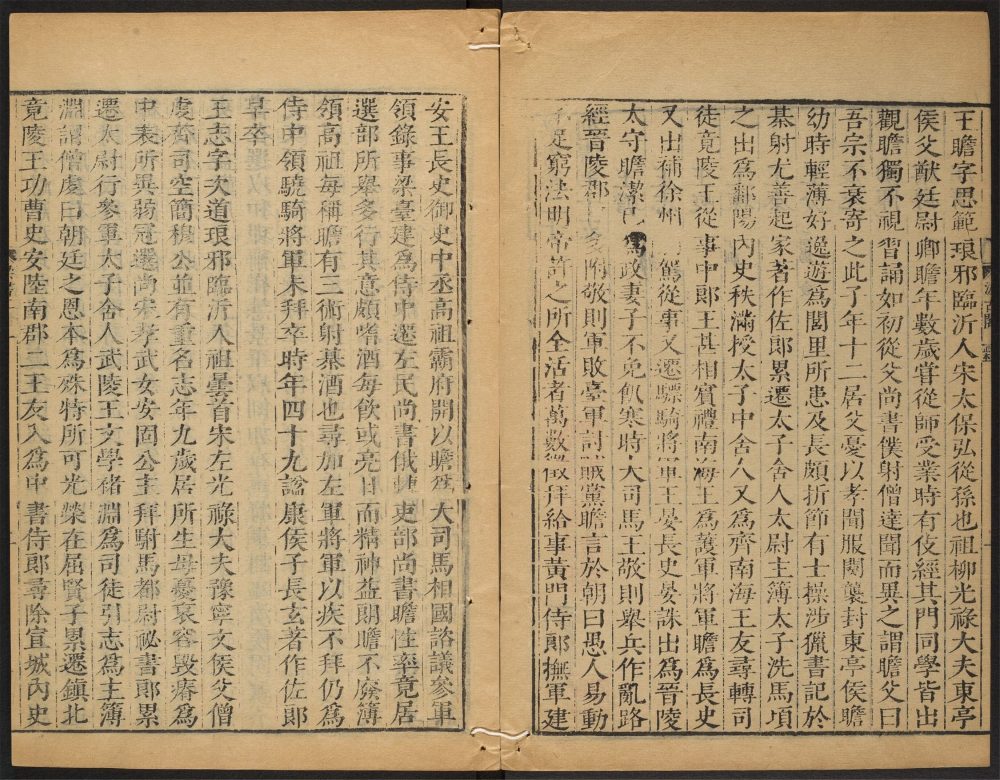 王瞻字思範琅邪臨沂人宋太保弘從孫也祖柳光祿大夫東亭
侯父猷廷尉卿瞻年數歲嘗從師受業時有伎經其門同學皆出
觀瞻獨不視習誦如初從父尚書僕射僧達聞而異之謂瞻父曰
吾宗不衰寄之此子年十二居父憂以孝聞服闋襲封東亭侯瞻
幼時輕薄好逸遊爲閭里所患及長頗折節有士操涉獵書記於
棊射尤善起家著作佐郎累遷太子舍人太尉主簿太子洗馬頃
之出爲鄱陽內史秩滿授太子中舍人又爲齊南海王友尋轉司
徒竟陵王從事中郎王甚相賓禮南海王爲護軍將軍瞻爲長史
又出補徐州駕從事又遷驃騎將軍王晏長史晏誅出爲晉陵
太守瞻潔己爲政妻子不免飢寒時大司馬王敬則舉兵作亂路
經晉陵郡附敬則軍敗臺軍討賊黨瞻言於朝曰愚人易動
不足窮法明帝許之所全活者萬數徵拜給事黃門侍郎撫軍建
安王長史御史中丞高祖霸府開以瞻爲大司馬相國諮議參軍
領錄事梁臺建爲侍中遷左民尚書俄轉吏部尚書瞻性率竟居
選部所舉多行其意頗嗜酒每飲或竟日而精神益朗瞻不廢簿
領高祖每稱瞻有三術射棊酒也尋加左軍將軍以疾不拜仍爲
侍中領驍騎將軍未拜卒時年四十九謚康侯子長玄著作佐郎
早卒
王志字次道琅邪臨沂人祖曇首宋左光祿大夫豫寧文侯父僧
虔齊司空簡穆公並有重名志年九歲居所生母憂哀容毀瘠爲
中表所異弱冠選尚宋孝武女安固公主拜駙馬都尉祕書郎累
遷太尉行參軍太子舍人武陵王文學褚淵爲司徒引志爲主簿
淵謂僧虔曰朝廷之恩本爲殊特所可光榮在屈賢子累遷鎮北
竟陵王功曹史安陸南郡二王友入爲中書侍郎尋除宣城內史